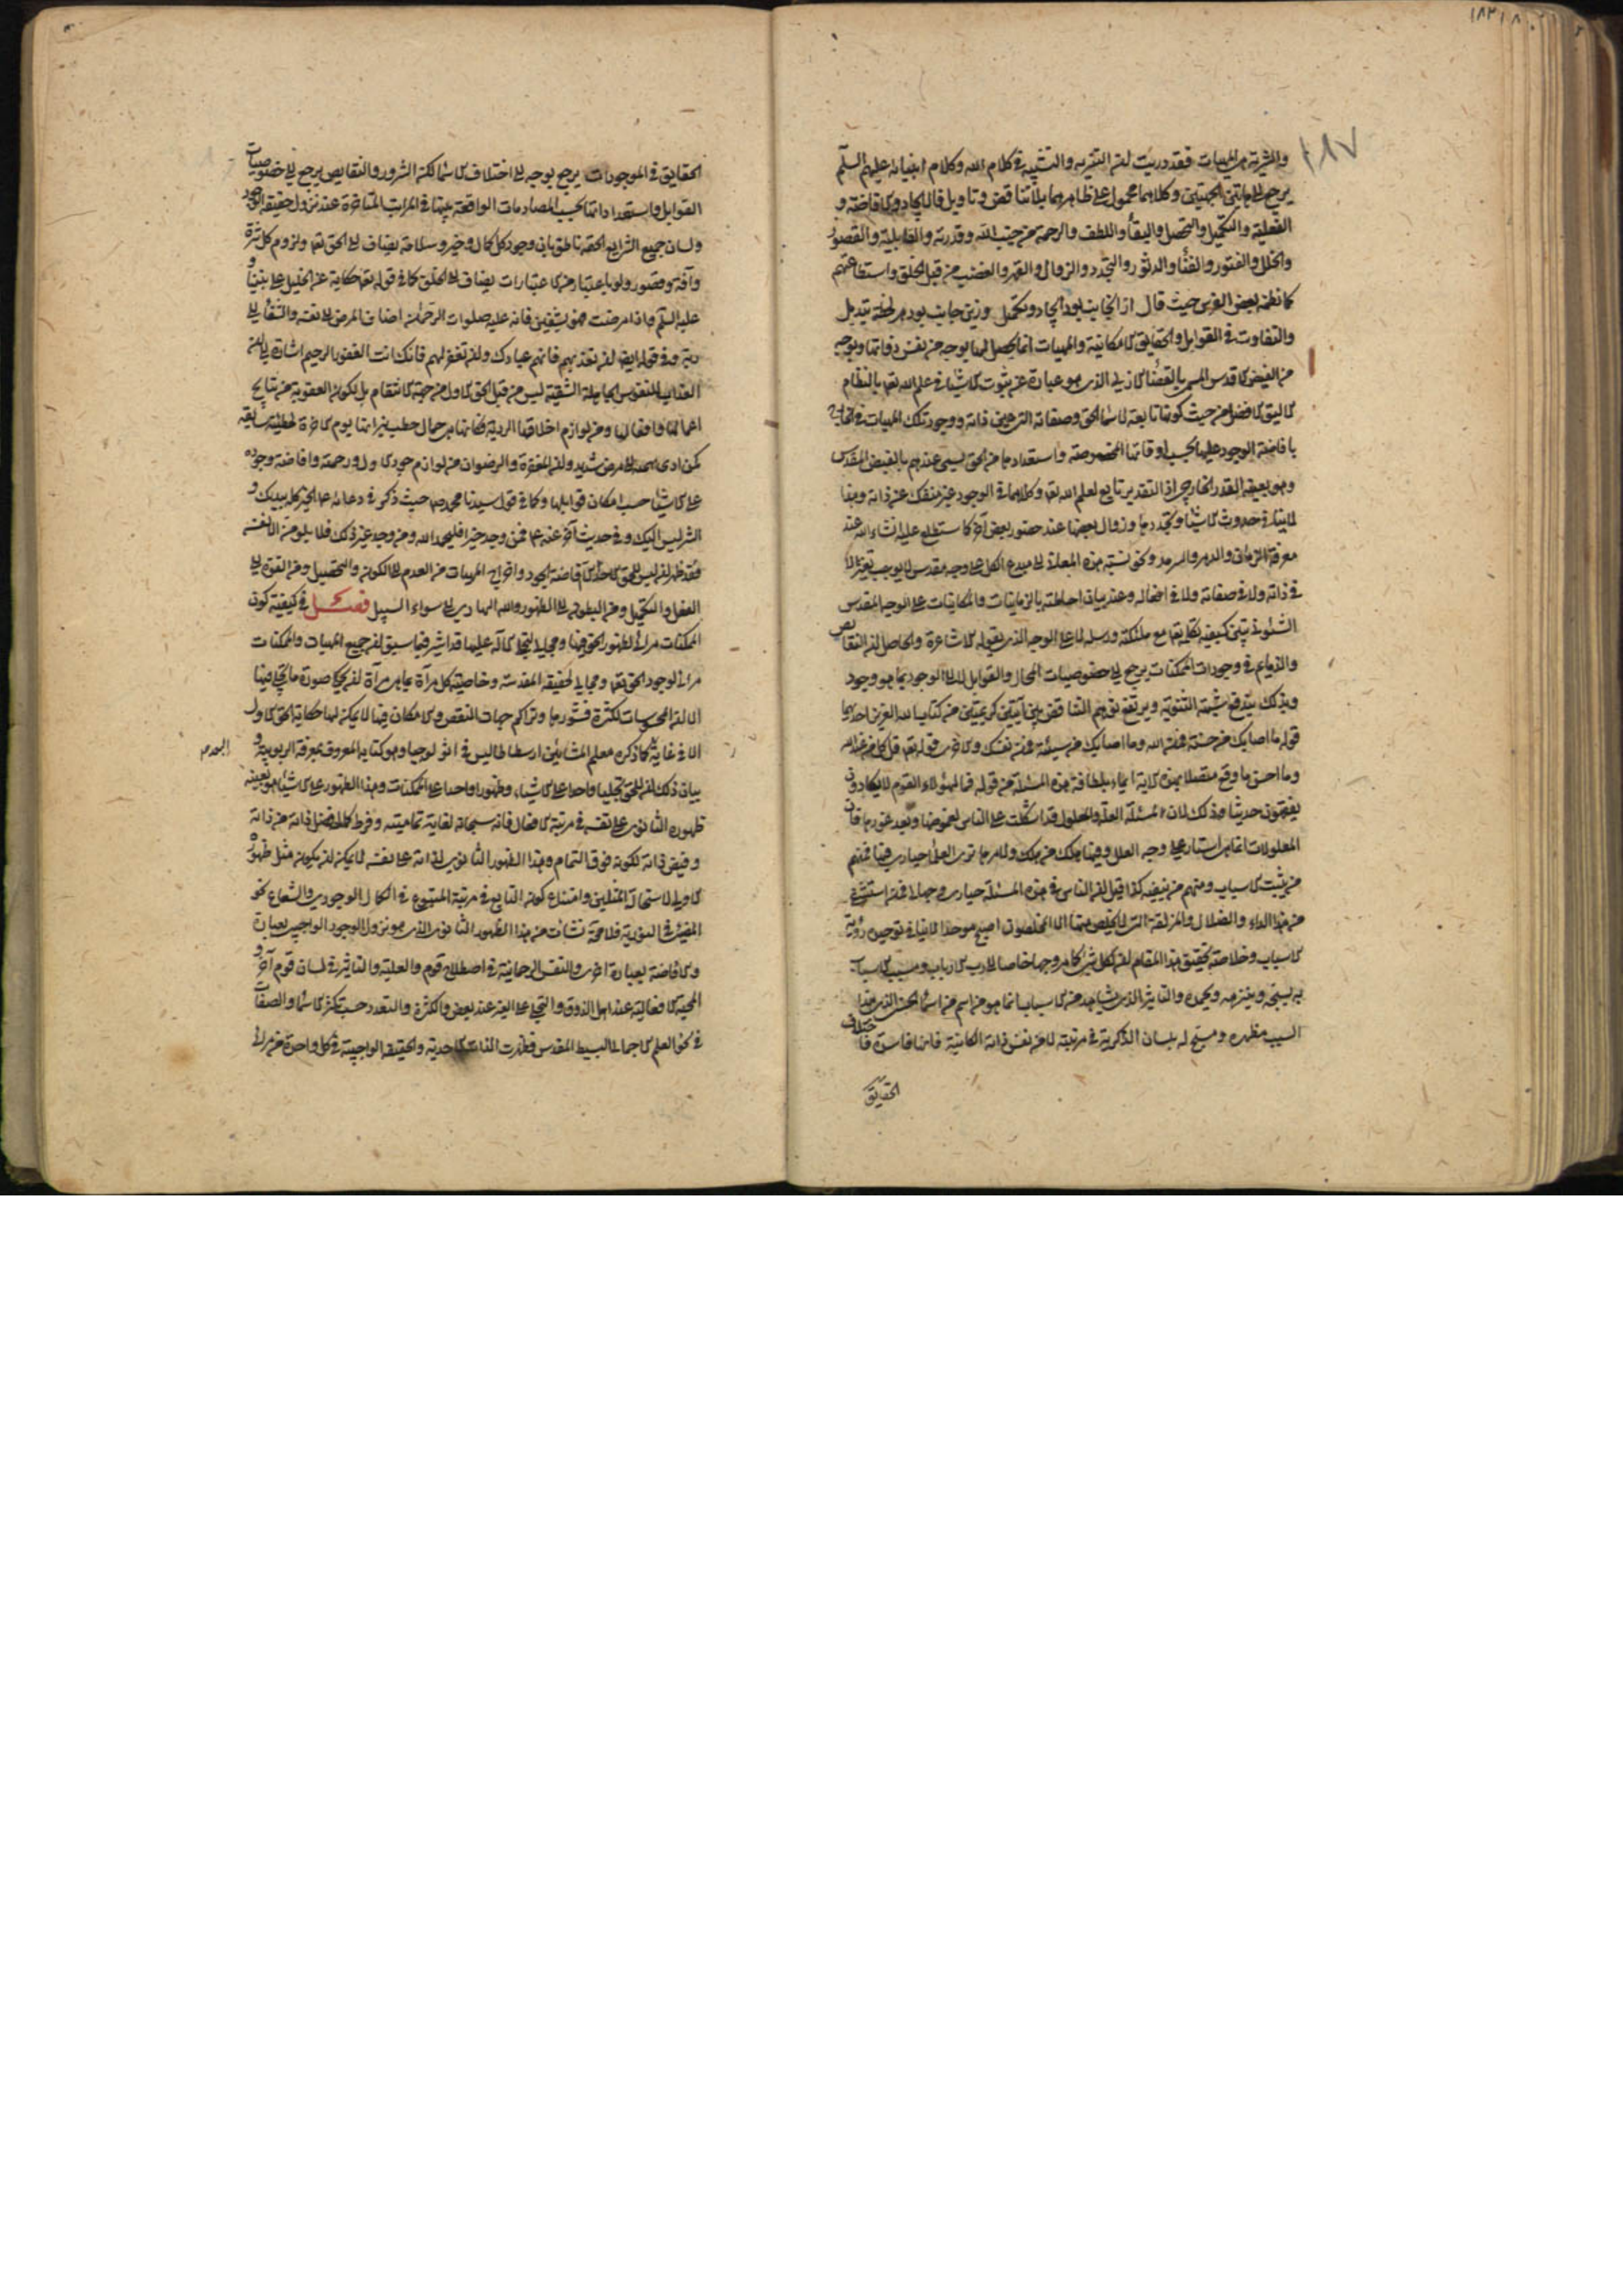 ١٨٧
والشرية هي المهيات فقد دريت ان التنزيه والتشبيه في كلام الله وكلام انبيائه عليهم السلم
يرجع الى هاتين الجهتين وكلاهما محمول على ظاهرهما بلا تناقض وتاويل فالايجاد والافاضة و
الفعلية والتكميل والتحصل والبقاء واللطف والرحمة من جنب الله وقدرته والقابلية والقصور
والخلل والفتور والفناء والدثور والتجدد والزوال والقهر والغضب من قبل الخلق واستطاعتهم
كما نظمه بعض الفرس حيث قال ازان جانب بود ايجاد وتكميل وزين جانب بود هر لحظه تبديل
والتفاوت في القوابل والحقايق الامكانية والمهيات انما يحصل لها بوجه من نفس ذواتها وبوجه
من الفيض الاقدس المسمى بالقضاء الازلي الذي هو عبارة عن ثبوت الاشياء في علم الله تعا بالنظام
الاليق الافضل من حيث كونها تابعة لاسماء الحق وصفاته التي هي عين ذاته ووجود تلك المهيات في الخارج
بافاضة الوجود عليها بحسب اوقاتها المخصوصة واستعدادها من الحق يسمى عندهم بالفيض المقدس
وهو بعينه القدر الخارجي اذ التقدير تابع لعلم الله تعا وكلاهما في الوجود غير منفك عن ذاته وهذا
لا ينافي حدوث الاشياء وتجددها وزوال بعضها عند حضور بعض اخر كما ستطلع عليه انشاء الله عند
معرفة الزمان والدهر والسرمد ونحو نسبة هذه المعاني الى مبدع الكل على وجه مقدس لا يوجب تغيرا لا
في ذاته ولا في صفاته ولا في افعاله وعند بيان احاطته بالزمانيات والمكانيات على الوجه المقدس
الشمولي يتبين كيفية تكلمه تعا مع ملئكته ورسله لا على الوجه الذي يقوله الاشاعرة والحاصل ان النقايص
والذمائم في وجودات الممكنات يرجع الى خصوصيات المحال والقوابل لا الى الوجود بما هو وجود
وبذلك يندفع شبهة الثنوية ويرتفع توهم التناقض بين آيتين كريمتين من كتاب الله العزيز احديهما
قوله ما اصابك من حسنة فمن الله وما اصابك من سيئة فمن نفسك والاخرى قوله تعا قل كل من عند الله
وما احسن ما وقع متصلا بهذه الاية ايماء بلطافة هذه المسئلة من قوله فما لهؤلاء القوم لا يكادون
يفقهون حديثا وذلك لان مسئلة العلة والمعلول قد اشكلت على الناس لغموضها وبعد غورها فان
المعلولات انما هي استار على وجه العلل وفيها هلك من هلك والامر ما ترى العلماء حيارى فيها فمنهم
من يثبت الاسباب ومنهم من ينفيه كذا قيل ان الناس في هذه المسئلة حيارى وجهال فمن استشفى
من هذا الداء والضلال والمزلقة التي لا يخلص منها الا المخلصون اصبح موحدا لا ينافي توحيده رؤية
الاسباب وخلاصة تحقيق هذا المقام ان لكل شيء كما مر وجها خاصا الى رب الارباب ومسبب الاسباب
به يسبحه وينزهه ويحمده والتاثير الذي يشاهد من الاسباب انما هو من اسم من اسماء الحسنى الذي هذا
السبب مظهره ومسبح له بلسان الذاكرية في مرتبته لا من نفس ذاته الكائنة فانها فاسدة فاختلاف
الحقايق
الحقايق في الموجودات يرجع بوجه الى اختلاف الاسماء لكن الشرور والنقايص يرجع الى خصوصيات
القوابل واستعداداتها بحسب المصادمات الواقعة بينها في المراتب المتاخرة عند نزول حقيقة الوجود
ولسان جميع الشرايع الحقة ناطق بان وجود كل كمال وخير وسلامة يضاف الى الحق تعا ولزوم كل شر
وآفة وقصور ولو باعتبار من الاعتبارات يضاف الى الخلق كما في قوله تعا حكاية عن الخليل على نبينا و
عليه السلم واذا مرضت فهو يشفين فانه عليه صلوات الرحمن اضاف المرض الى نفسه والشفاء الى
ربه وفي قوله ايضا ان تعذبهم فانهم عبادك وان تغفر لهم فانك انت الغفور الرحيم اشارة الى ان
العذاب للنفوس الجاهلة الشقية ليس من قبل الحق الاول من جهة الانتقام بل لكون العقوبة من نتايج
اعمالها وافعالها ومن لوازم اخلاقها الردية فكانها هي حمال حطب نيرانها يوم الاخرة لخطيئة سابقة
كمن ادى نهمه الى مرض شديد وان المغفرة والرضوان من لوازم جود الاول ورحمته وافاضة وجوده
على الاشياء حسب امكان قوابلها وكما في قول سيدنا محمد ص حيث ذكر في دعائه الخير كله بيديك و
الشر ليس اليك وفي حديث آخر عنه ع فمن وجد خيرا فليحمد الله ومن وجد غير ذلك فلا يلومن الا نفسه
فقد ظهر ان ليس للحق الا حمد افاضة الوجود واخراج المهيات من العدم الى الكون والتحصيل ومن القوة الى
الفعل والتكميل ومن البطون الى الظهور والله الهادي الى سواء السبيل فصل في كيفية كون
الممكنات مرائي لظهور الحق فيها ومجالي لتجلي الاله عليها قد اشير فيما سبق ان جميع المهيات والممكنات
مرائي لوجود الحق تعا ومجالي لحقيقته المقدسة وخاصية كل مرآة بما هي مرآة ان يحكي صورة ما تجلى فيها
الا ان المحسوسات لكثرة قشورها وتراكم جهات النقص والامكان فيها لا يمكن لها حكاية الحق الاول
الا في غاية كما ذكره معلم المشائين ارسطاطاليس في اثولوجيا وهو كتابه المعروف بمعرفة الربوبية و
البعد
بيان ذلك ان للحق تجليا واحدا على الاشياء وظهورا واحدا على الممكنات وهذا الظهور على الاشياء هو بعينه
ظهوره الثانوي على نفسه في مرتبة الافعال فانه سبحانه لغاية تماميته وفرط كماله فضل ذاته من ذاته
وفيض ذاته لكونه فوق التمام وهذا الظهور الثانوي لذاته على نفسه لا يمكن ان يكون مثل ظهوره
الاولي لاستحالة المثلين وامتناع كون التابع في مرتبة المتبوع في الكمال الوجودي والشعاع نحو
المضيء في النورية فلا محة نشات من هذا الظهور الثانوي الذي هو نزول الوجود الواجبي بعبارة
والافاضة بعبارة اخرى والنفس الرحمانية في اصطلاح قوم والعلية والتاثير في لسان قوم آخر و
المحبة الافعالية عند اهل الذوق والتجلي على الغير عند بعض الكثرة والتعدد حسب تكثر الاسماء والصفات
في نحو العلم الاجمالي البسيط المقدس فظهرت الذات الاحدية والحقيقة الواجبية في كل واحدة من مرائي